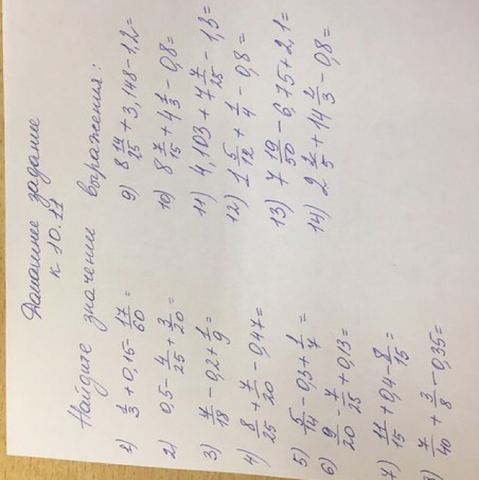 Домашнее задание
к 10.11
Найдите значение выражения:
1) 1/3 + 0,15 - 17/60
2) 0,5 - 4/25 + 3/20 =
3) 7/18 - 0,2 + 1/9
4) 8/25 + 7/20 - 0,47 =
5) 5/14 - 0,3 + 1/7
6) 9/20 - 7/25 + 0,13 =
7) 11/15 + 0,4 - 8/15 =
8) 7/40 + 3/8 - 0,35 =
9) 8 14/25 + 3,148 - 1,2 =
10) 8 7/15 + 4 1/3 - 0,8 =
11) 4,103 + 7 7/25 - 1,3 =
12) 1 5/12 + 1/4 - 0,8 =
13) 7 19/50 - 6,75 + 2,1 =
14) 2 2/5 + 14 2/3 - 0,8 =